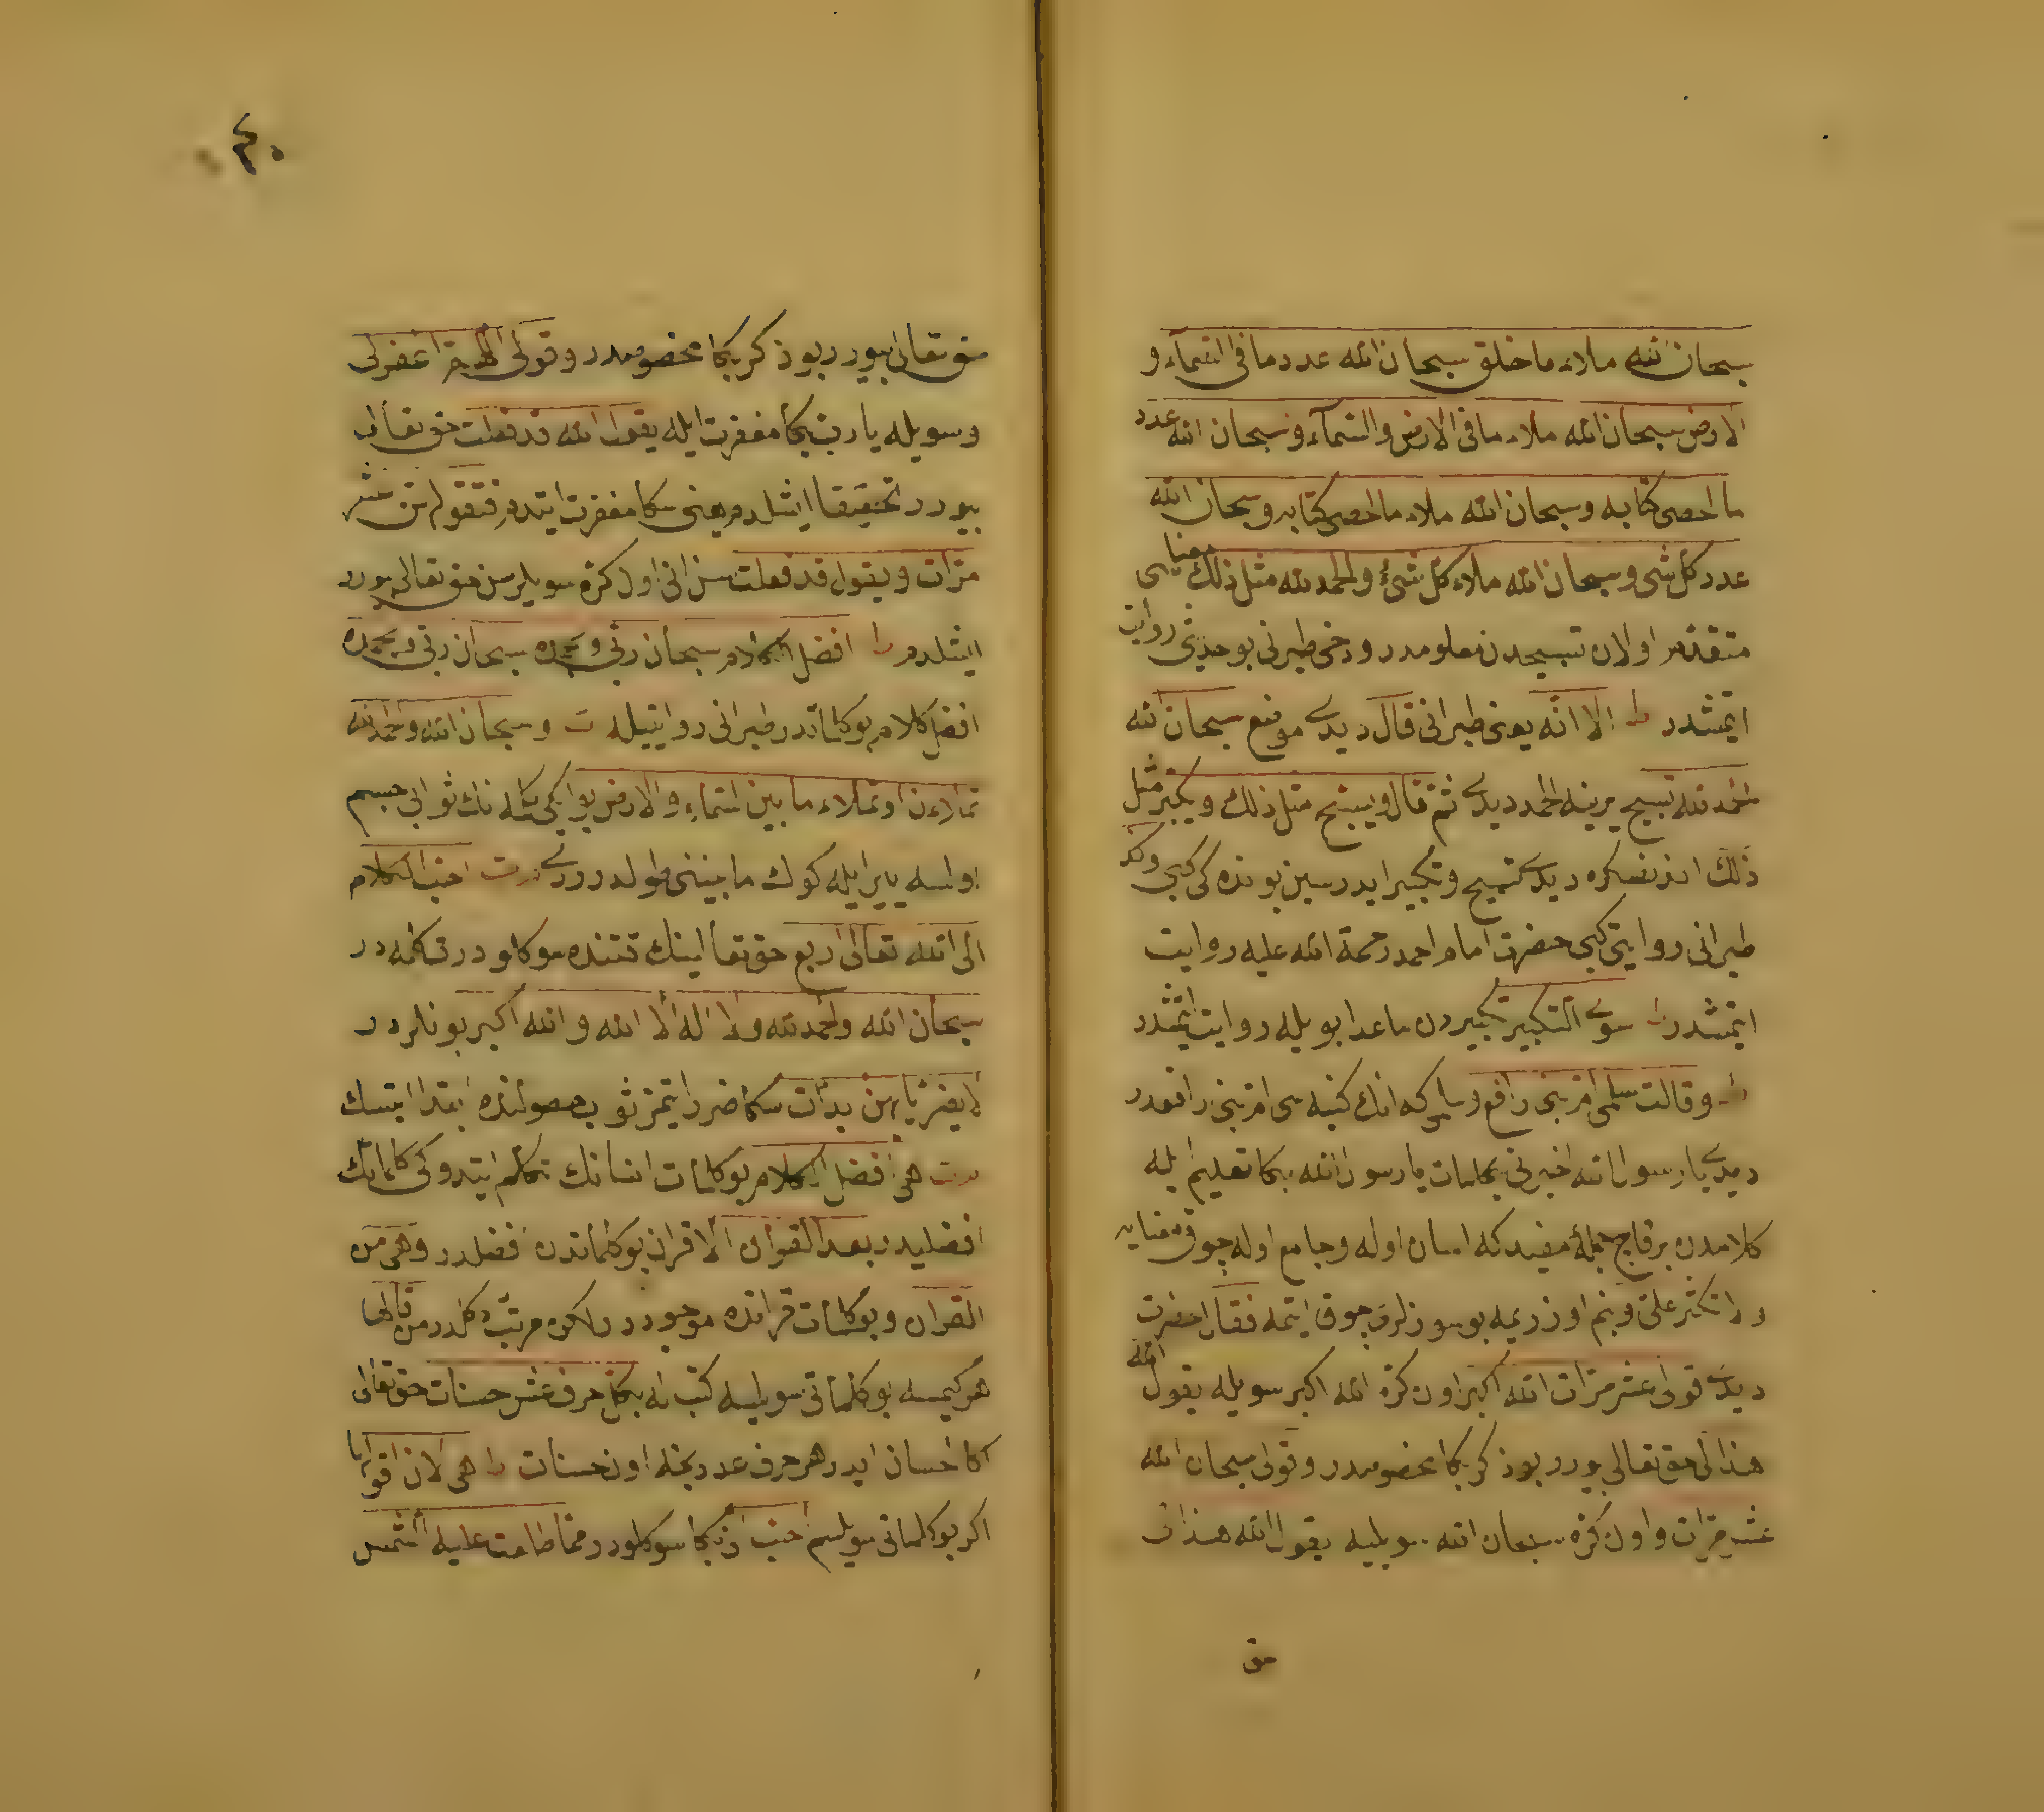 سبحان الله ملاء ما خلق سبحان الله عدد ما فى السمآء و
الارض سبحان الله ملاء ما فى الارض والسمآء و سبحان الله عدد
ما احصى كتابه و سبحان الله ملاء ما احصى كتابه و سبحان الله
عدد كل شى و سبحان الله ملاء كل شئ والحمد لله مثل ذلك معناسى
متقدم اولان تسبيحدن معلومدر ودخى طبرنى بو حديثى روايت
ايتمشدر ط الا انه يعنى طبرانى قال ديدى موضع سبحان الله
الحمد لله تسبيح يرينه الحمد ديدى ثم قال ويسبح مثل ذلك ويكبر مثل
ذلك اندنصكره ديدى تسبيح وتكبير ايدرسين بونده كى كبى
طبرانى روايتى كبى حضرت امام احمد رحمة الله عليه روايت
ايتمشدر سوى التكبير تكبيردن ماعدا بويله روايت ايتمشدر
ط وقالت سلمى ام بنى رافع دخى كه انك كنيه سى ام بنى رافعدر
ديدى يا رسول الله اخبرنى بكلمات يا رسول الله بكا تعليم ايله
كلامدن بر قاج جمله مفيد كه اسان اوله وجامع اوله چوق معنايه
ولا تكثر على وبنم اوزريمه بو سوزلرى چوق ايتمه فقال حضرت
ديدى قولى عشر مرات الله اكبر اون كره الله اكبر سويله يقول الله
هذا لى حق تعالى بيورر بو ذكر بكا مخصوصدر وقولى سبحان الله
عشر مرات واون كره سبحان الله سويليه يقول الله هذا لى
حق
٤٠
حق تعالى بيورر بو ذكر بكا مخصوصدر وقولى اللهم اغفرلى
وسويله يا رب بكا مغفرت ايله يقول الله قد فعلت حق تعالى
بيورر تحقيقا ايشلدم يعنى سكا مغفرت ايتدم فتقولين عشر
مرات ويقول قد فعلت سن انى اون كره سويلرسن حق تعالى بيورر
ايشلدم ط افضل الكلام سبحان ربى وبحمده سبحان ربى وبحمده
افضل كلام بو كلماتدر طبرانى روايتيله ت و سبحان الله والحمد لله
تملاءن او تملاء ما بين السماء والارض بو ايكى كلمه نك ثوابى جسم
اولسه يير ايله كوك مابينى طولدررى احب الكلام
الى الله تعالى اربع حق تعالينك قتنده سوكلو درت كلمه در
سبحان الله والحمد لله ولا اله الا الله والله اكبر بونلردر
لا يضرك بايهن بدأت سكا ضرر ايتمز ثواب حصولنده ابتدا ايتسك
هى افضل الكلام بو كلمات انسانك تكلم ايتدوكى كلماتك
افضليدر بعد القران الا قران بو كلماتدن افضلدر وهى من
القران وبو كلمات قرانده موجوددر لاكن مرتب دكلدر من قالها
هر كيمسه بو كلماتى سويلسه كتب له بكل حرف عشر حسنات حق تعالى
اكا احسان ايدر هر حرف عددنجه اون حسنات ط هى لان اقولها
اكر بو كلماتى سويلسم احب الى بكا سوكلودر مما طلعت عليه الشمس